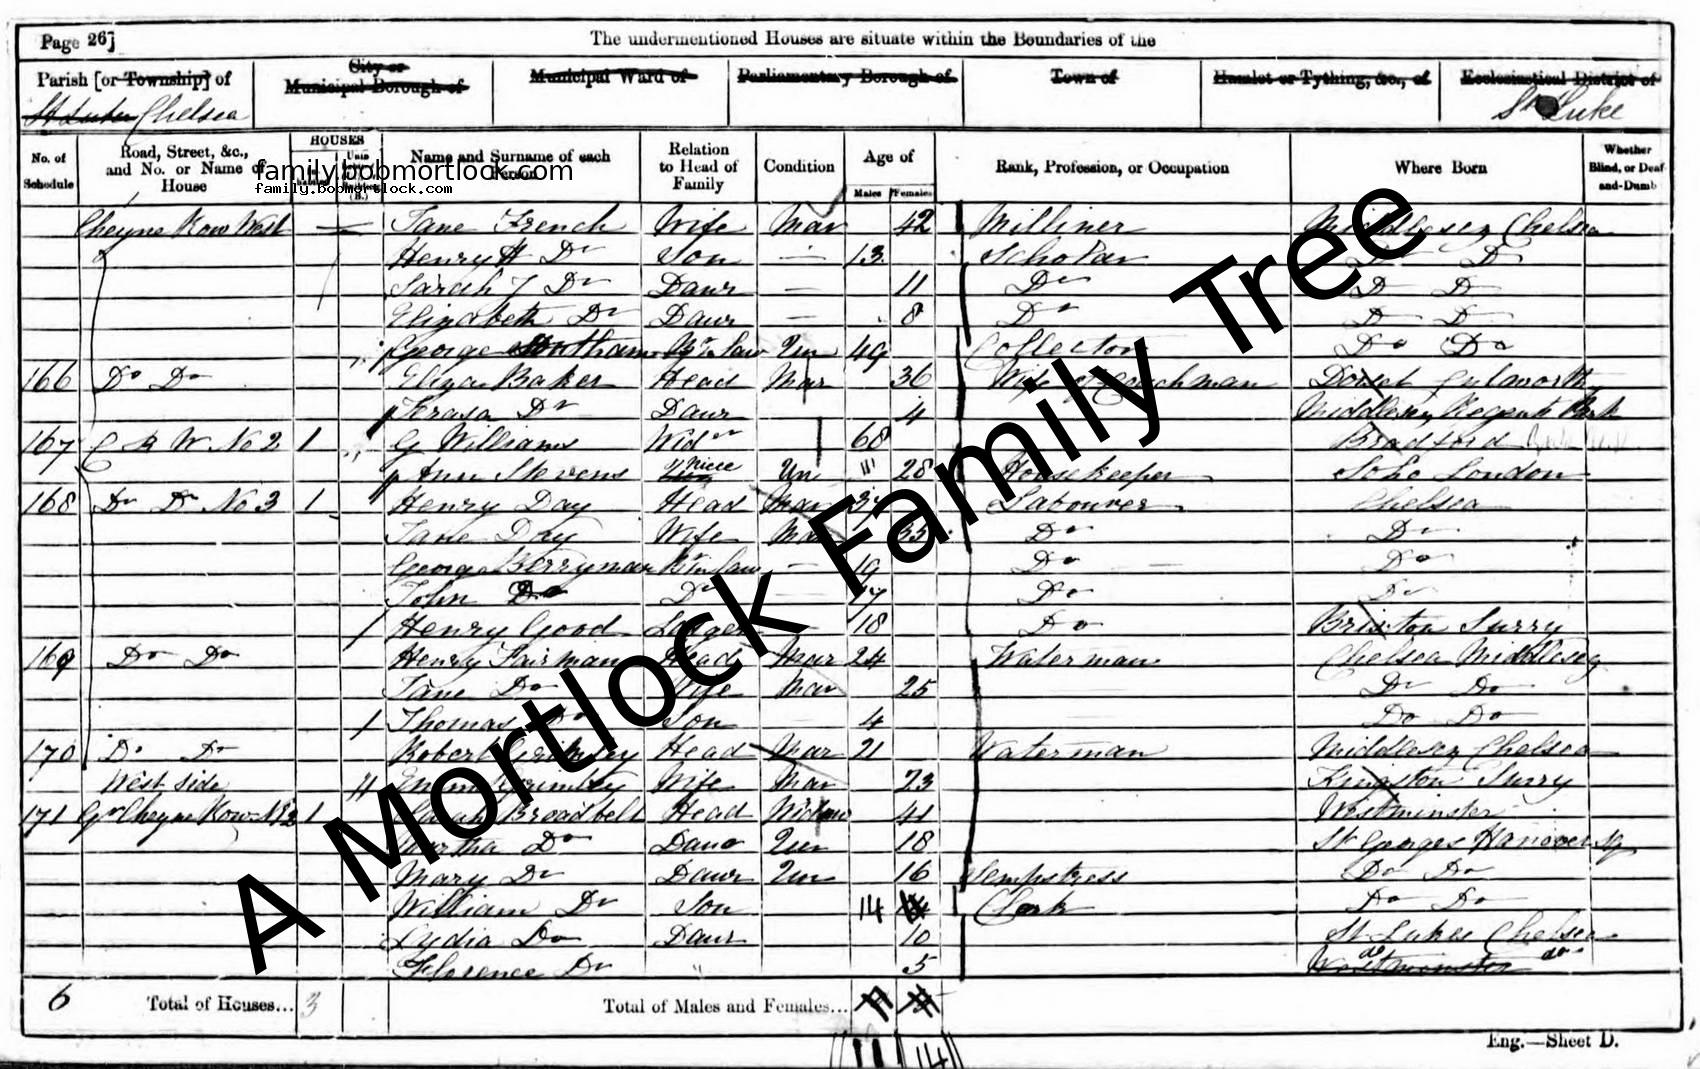 Page 26]
The undermentioned Houses are situate within the Boundaries of the
Parish [or Township] of
City or
Municipal Borough of
Municipal Ward of
Parliamentary Borough of
Town of
Hamlet or Tything, &c., of
Ecclesiastical District of
St Lukes Chelsea
St Luke
HOUSES
No. of Schedule
Road, Street, &c., and No. or Name of House
Name and Surname of each Person
Relation to Head of Family
Condition
Age of
Males
Females
Rank, Profession, or Occupation
Where Born
Whether Blind, or Deaf-and-Dumb
(B.)
family.bobmortlock.com
family.bobmortlock.com
Cheyne Row West Jane French Wife Mar 42 Milliner Middlesex Chelsea
Henry H Do Son 13 Scholar Do
Sarah J Do Daur 11 Do Do Do
Elizabeth Do Daur 8 Do Do Do
George Br in law Un 49 Collector Do Do
166 Do Do Eliza Baker Head Mar 36 Wife of Coachman Dorset
Do Daur 4 Middlesex Regents Park
167 C R W No 2 1 G Williams Widr 68 Bradford
Ann Stevens Niece Un 28 Housekeeper Soho London
168 Do Do No 3 1 Henry Day Head Mar 37 Labourer Chelsea
Jane Day Wife Mar 35 Do Do
George Berryman Br in law 19 Do Do
John Do Do 17 Do Do
Henry Good Lodger 18 Do Brixton Surry
169 Do Do Henry Fairman Head Mar 24 Waterman Chelsea Middlesex
Jane Do Wife Mar 25 Do Do
Thomas Do Son 4 Do Do
170 Do Do Robert Grimley Head Mar 21 Waterman Middlesex Chelsea
West Side Emma Grimley Wife Mar 23 Kingston Surry
171 Gt Cheyne Row No 2 1 Sarah Broadbelt Head Widow 41 Westminster
Martha Do Daur Un 18 St Georges Hanover Sq
Mary Do Daur Un 16 Sempstress Do Do
William Do Son 14 Clerk Do Do
Lydia Do Daur 10 St Lukes Chelsea
Florence Do 5 Westminster do do
6 Total of Houses... 3 Total of Males and Females...
11 14
Eng.—Sheet D.
A Mortlock Family Tree